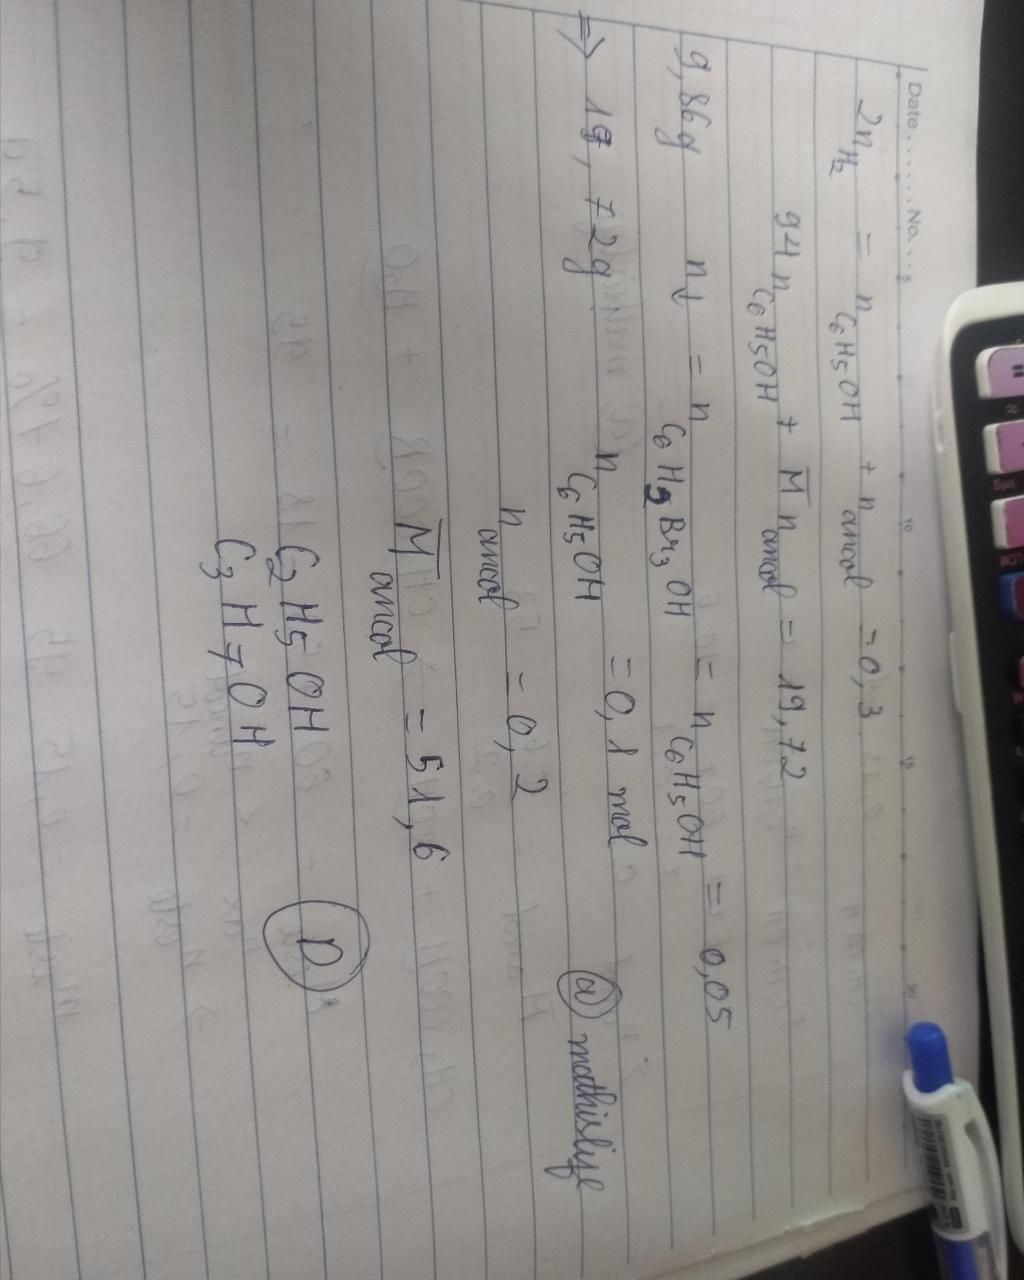 Date......No...
2n H2 = n C6H5OH + n ancol = 0,3
94n C6H5OH + M̅ n ancol = 19,72
9,86g n↓ = n C6H2Br3OH = n C6H5OH = 0,05
=> 19,72g n C6H5OH = 0,1 mol
@ mathislife
n ancol = 0,2
M̅ ancol = 51,6
C2H5OH
C3H7OH
D
10
15
20